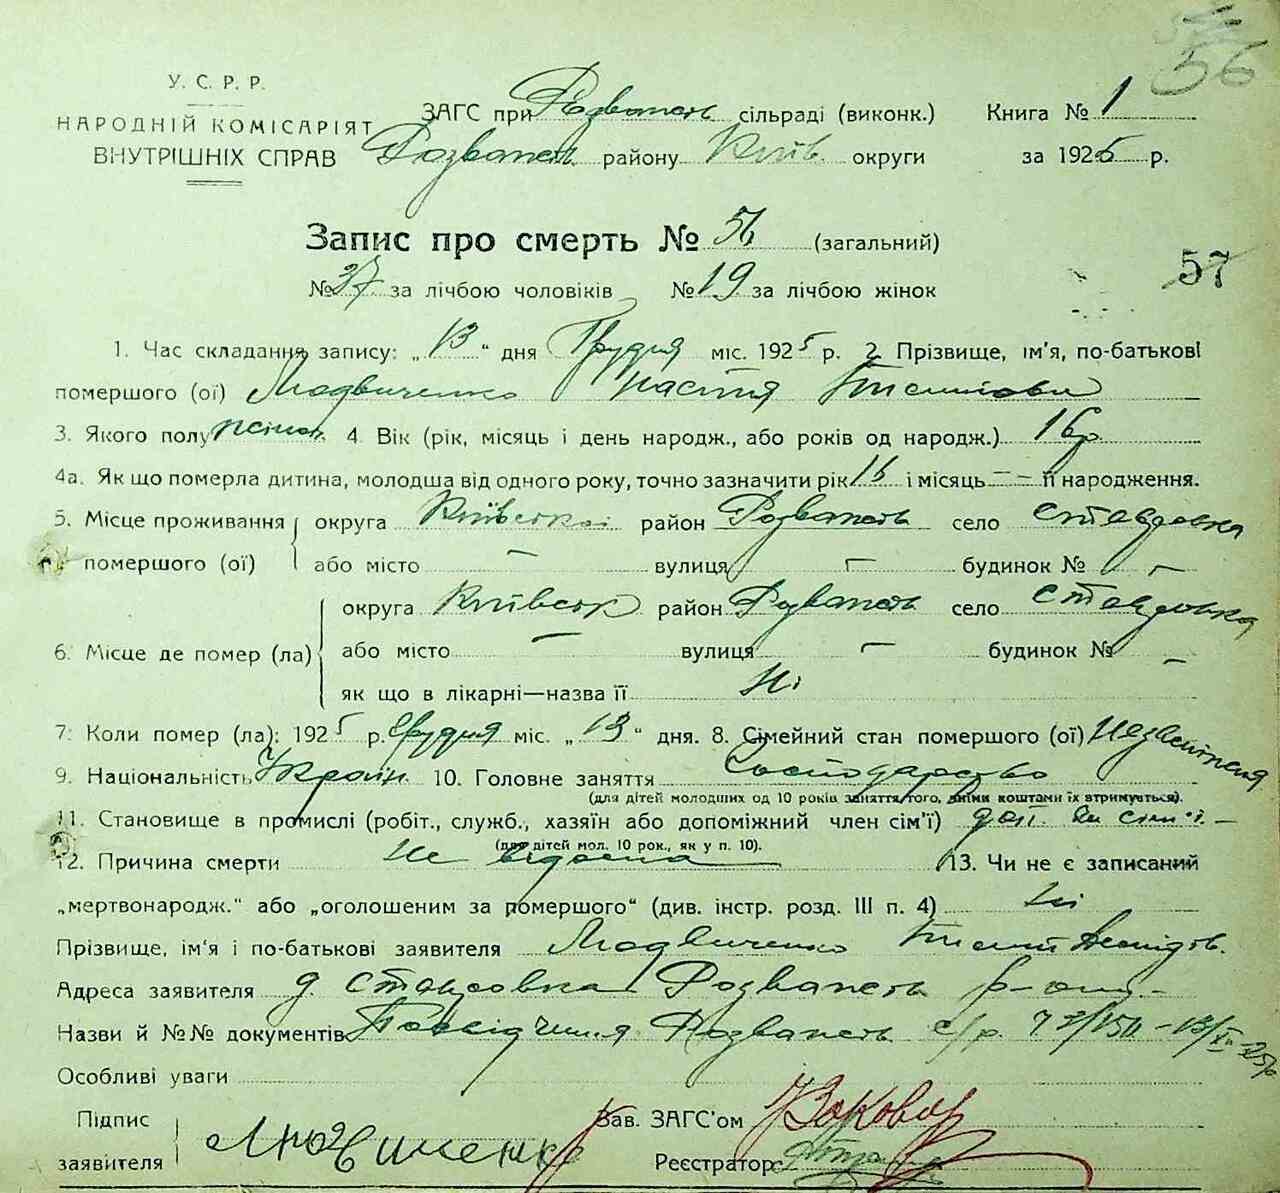 56
У. С. Р. Р.
НАРОДНІЙ КОМІСАРІЯТ
ВНУТРІШНІХ СПРАВ
ЗАГС при Розважев сільраді (виконк.) Книга № 1
Розважев району Київ. округи за 1925 р.
Запис про смерть № 56 (загальний)
57
№ 37 за лічбою чоловіків № 19 за лічбою жінок
1. Час складання запису: „13“ дня Грудня міс. 1925 р. 2. Прізвище, ім'я, по-батькові
помершого (ої) Настя
3. Якого полу жіноч. 4. Вік (рік, місяць і день народж., або років од народж.) 16 р.
4а. Як що померла дитина, молодша від одного року, точно зазначити рік 16 і місяць – – її народження.
5. Місце проживання округа Київської район Розважев село
помершого (ої) або місто – вулиця – будинок № –
округа Київськ район Розважев село
6. Місце де помер (ла) або місто – вулиця – будинок № –
як що в лікарні—назва її Ні
7. Коли помер (ла): 1925 р. Грудня міс. „13“ дня. 8. Сімейний стан помершого (ої)
9. Національність Україн. 10. Головне заняття Господарство
(для дітей молодших од 10 років заняття того, чиїми коштами їх втримується).
11. Становище в промислі (робіт., служб., хазяїн або допоміжний член сім'ї) доп. чл. сім'ї –
(для дітей мол. 10 рок., як у п. 10).
12. Причина смерти Не відома 13. Чи не є записаний
„мертвонародж.“ або „оголошеним за помершого“ (див. інстр. розд. III п. 4) Ні
Прізвище, ім'я і по-батькові заявителя
Адреса заявителя Розважев р-
Назви й №№ документів Посвідчення Розважев с/р.
Особливі уваги
Підпис Зав. ЗАГС'ом
заявителя Реєстратор